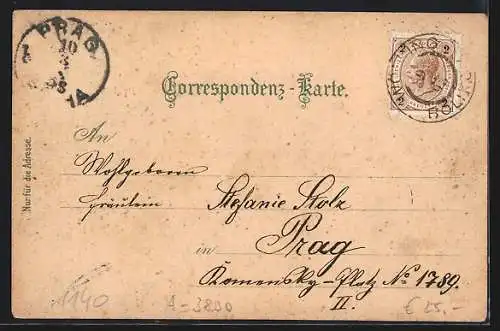 PRAG
10
3
98
1A
Correspondenz - Karte.
2
Nur für die Adresse.
An
Wohlgeboren
Fräulein
Stefanie Stolz
in Prag
Komensky-Platz No 1789.
II.
1140
A-3890
€ 25.-